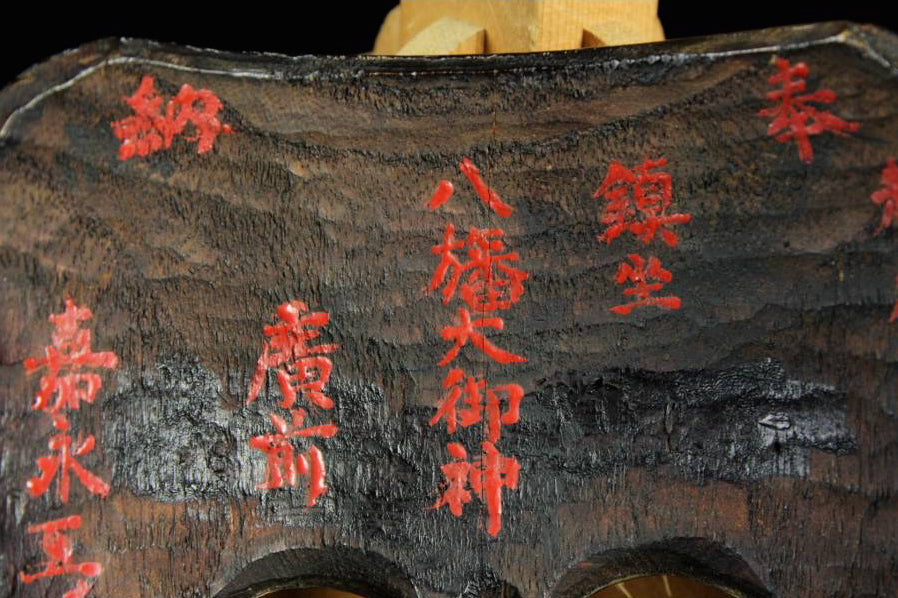 奉
鎮坐
八幡大御神
廣前
納
嘉永五